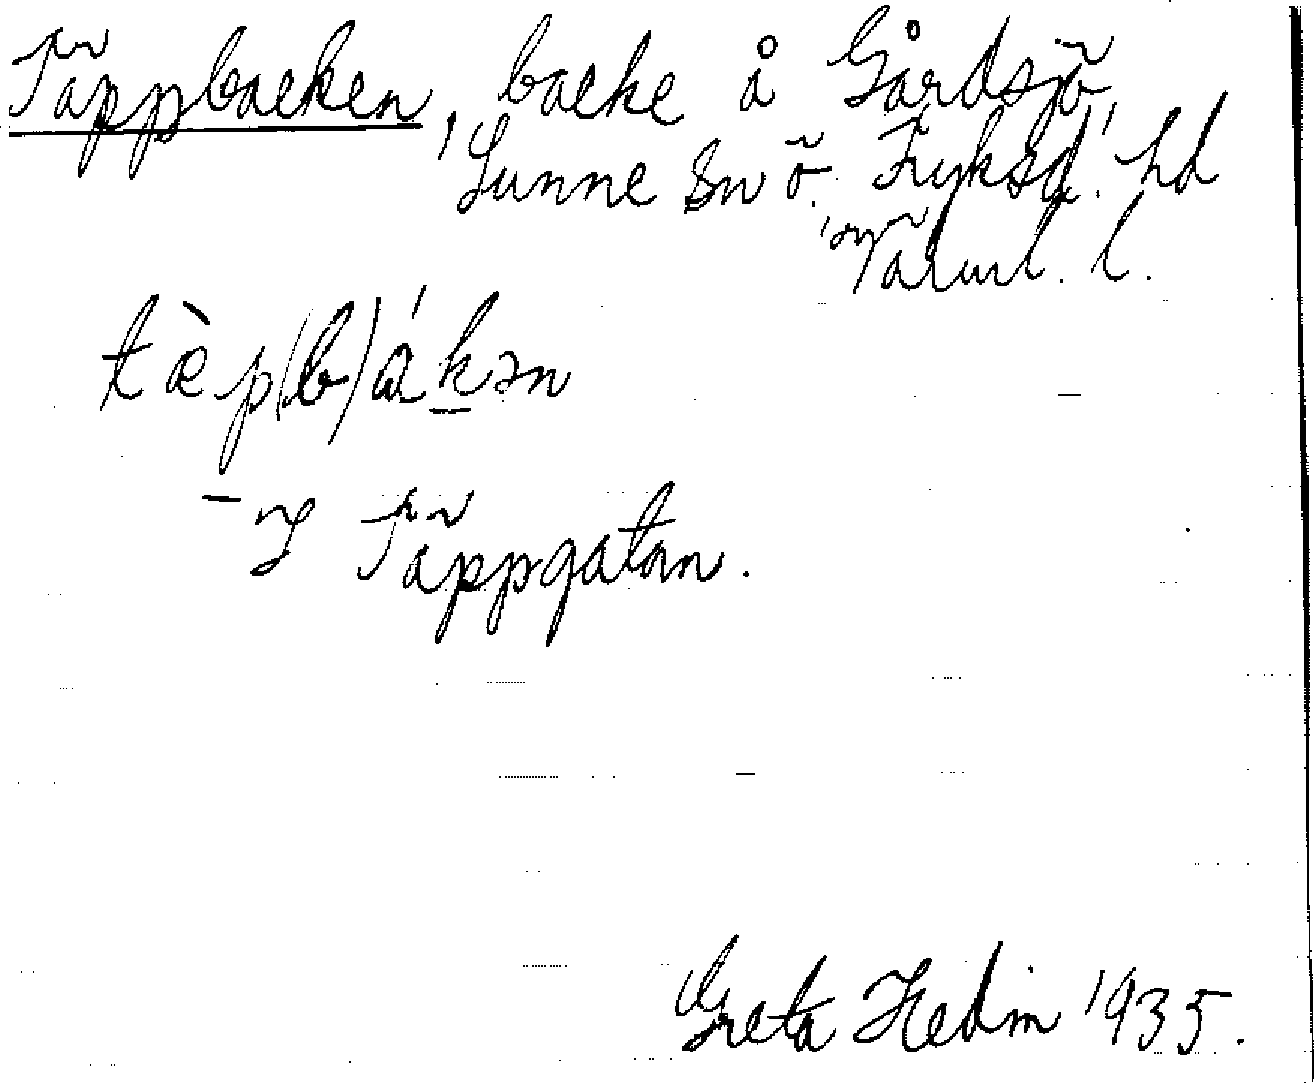 Täppbacken, backe å Gårdsjö,
Sunne sn ö. Fryksd. hd
Värml. l.
tæ̀p(b)ákən
I Täppgatan.
Greta Hedin 1935.